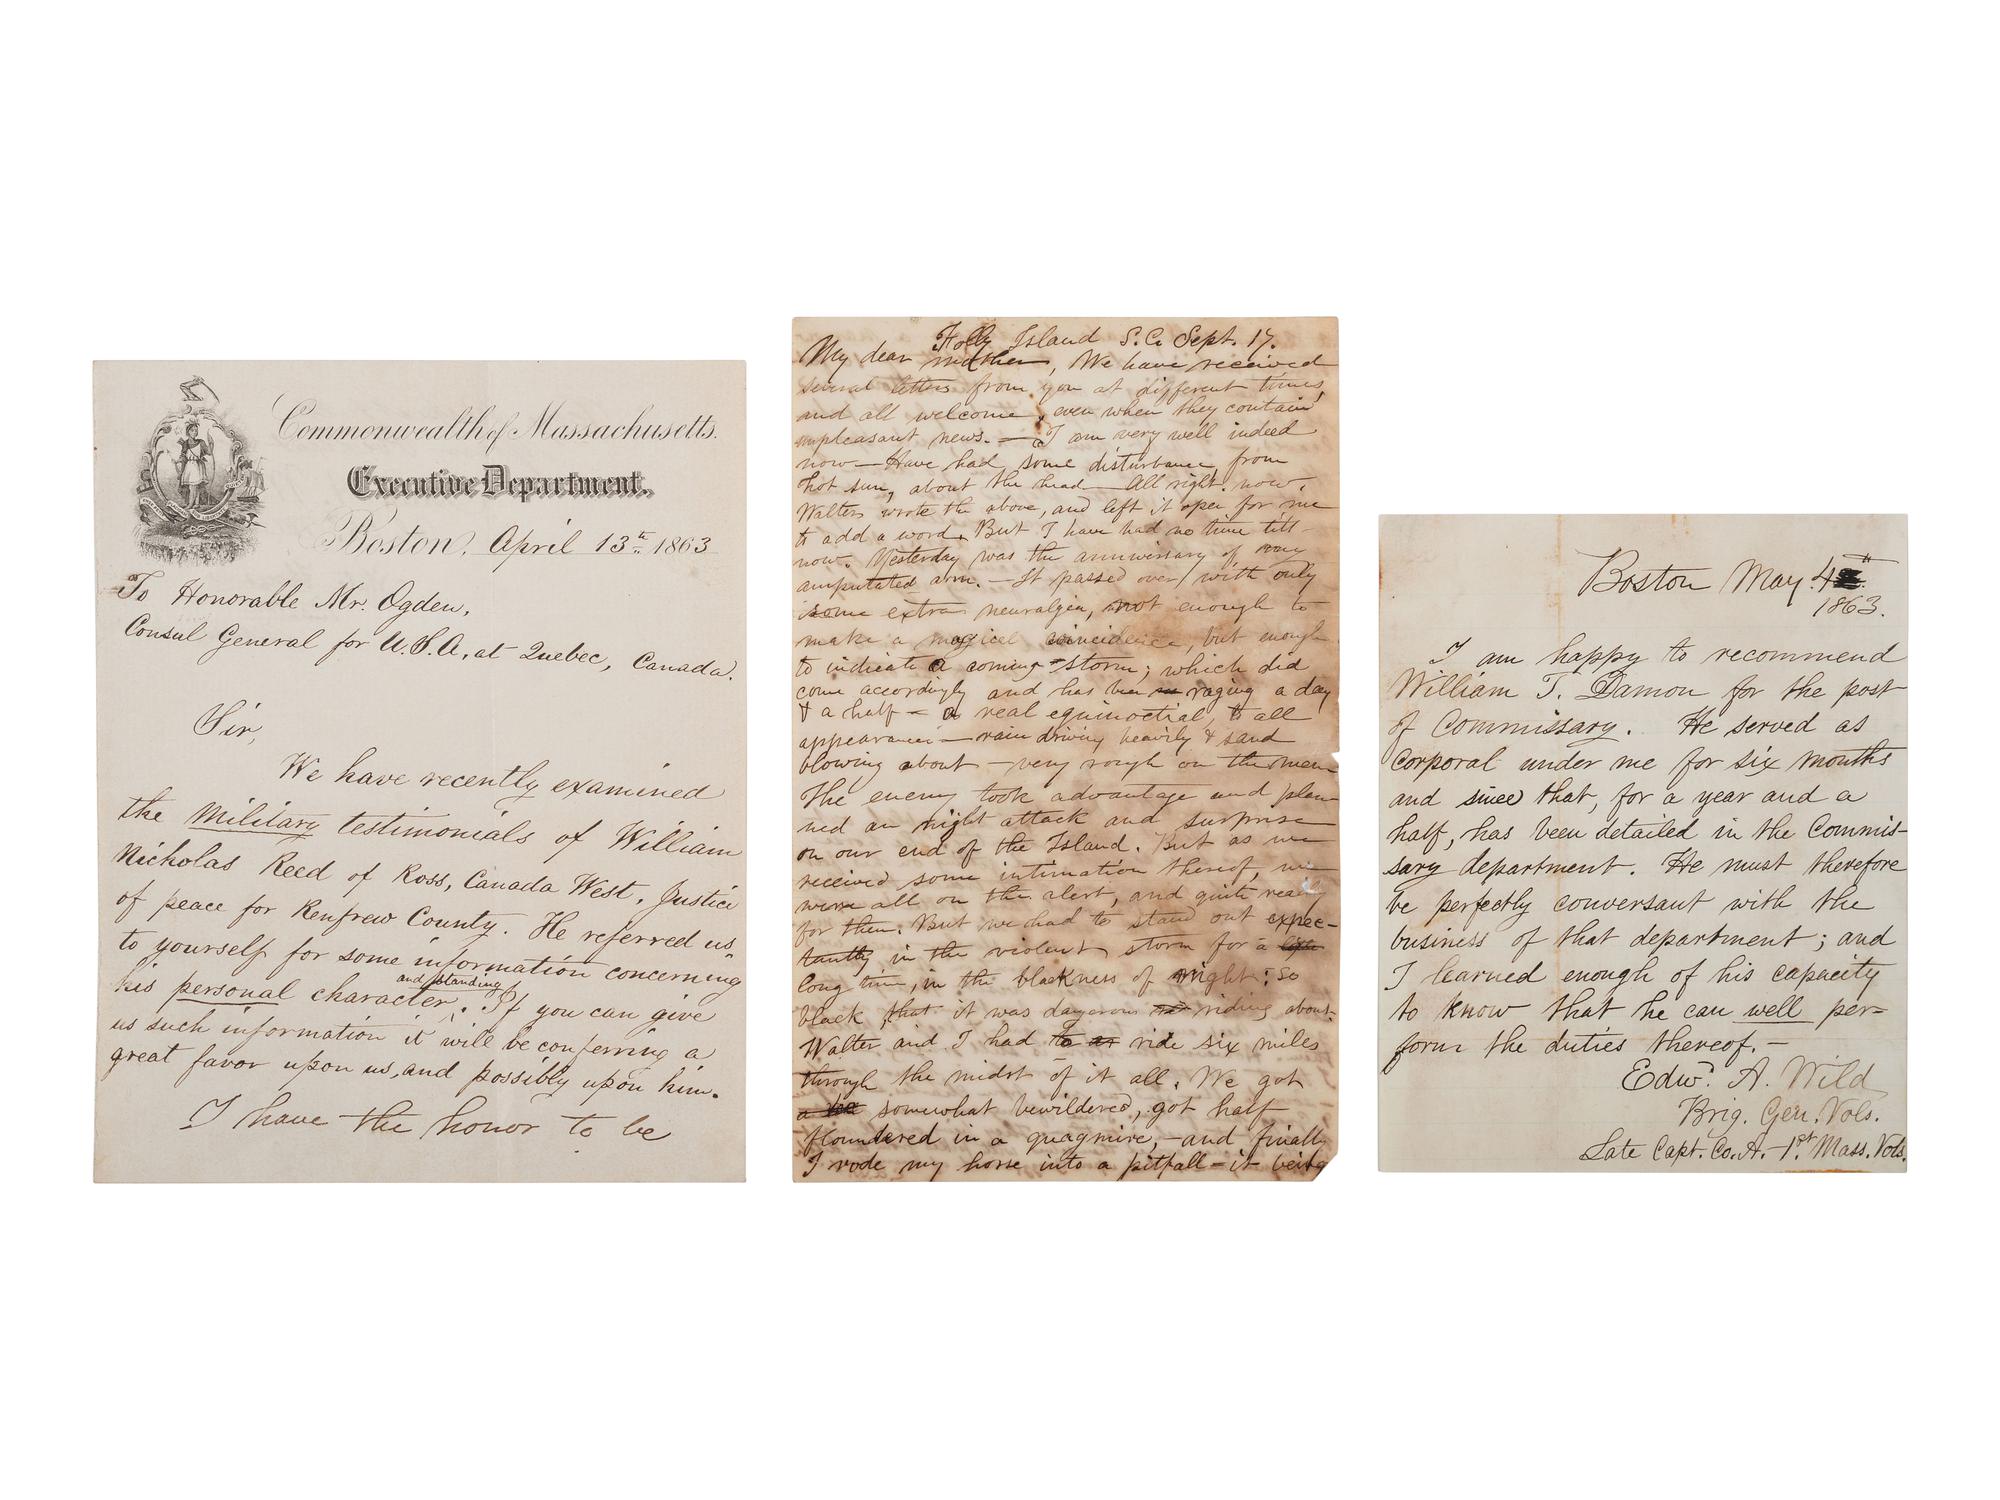 Commonwealth of Massachusetts.
Executive Department.
Boston, April 13th 1863
To Honorable Mr. Ogden,
Consul General for U.S.A. at Quebec, Canada.
Sir,
We have recently examined
the Military testimonials of William
Nicholas Reed of Ross, Canada West, Justice
of peace for Renfrew County. He referred us
to yourself for some information concerning
his personal character and standing. If you can give
us such information it will be conferring a
great favor upon us, and possibly upon him.
I have the honor to be
Folly Island S.C. Sept. 17.
My dear mother, We have received
several letters from you at different times,
and all welcome, even when they contain
unpleasant news. — I am very well indeed
now — Have had some disturbance from
hot sun, about the head — All right now.
Walter wrote the above, and left it open for me
to add a word. But I have had no time till
now. Yesterday was the anniversary of my
amputated arm. — It passed over with only
some extra neuralgia, not enough to
make a magical coincidence, but enough
to indicate a coming storm; which did
come accordingly and has been raging a day
& a half — a real equinoctial, to all
appearance — rain driving heavily & sand
blowing about — very rough on the men
The enemy took advantage and plan
ned an night attack and surprise
on our end of the Island. But as we
received some intimation thereof, we
were all on the alert, and quite ready
for them. But we had to stand out expec-
tantly in the violent storm for a
long time, in the blackness of night; so
black, that it was dangerous riding about.
Walter and I had to ride six miles
through the midst of it all. We got
somewhat bewildered, got half
floundered in a quagmire, — and finally
I rode my horse into a pitfall — it being
Boston May 4th
1863.
I am happy to recommend
William T. Damon for the post
of Commissary. He served as
corporal under me for six months
and since that, for a year and a
half, has been detailed in the Commis-
sary department. He must therefore
be perfectly conversant with the
business of that department; and
I learned enough of his capacity
to know that he can well per-
form the duties thereof. —
Edwd. A. Wild
Brig. Gen. Vols.
Late Capt. Co. A. - 1st Mass. Vols.